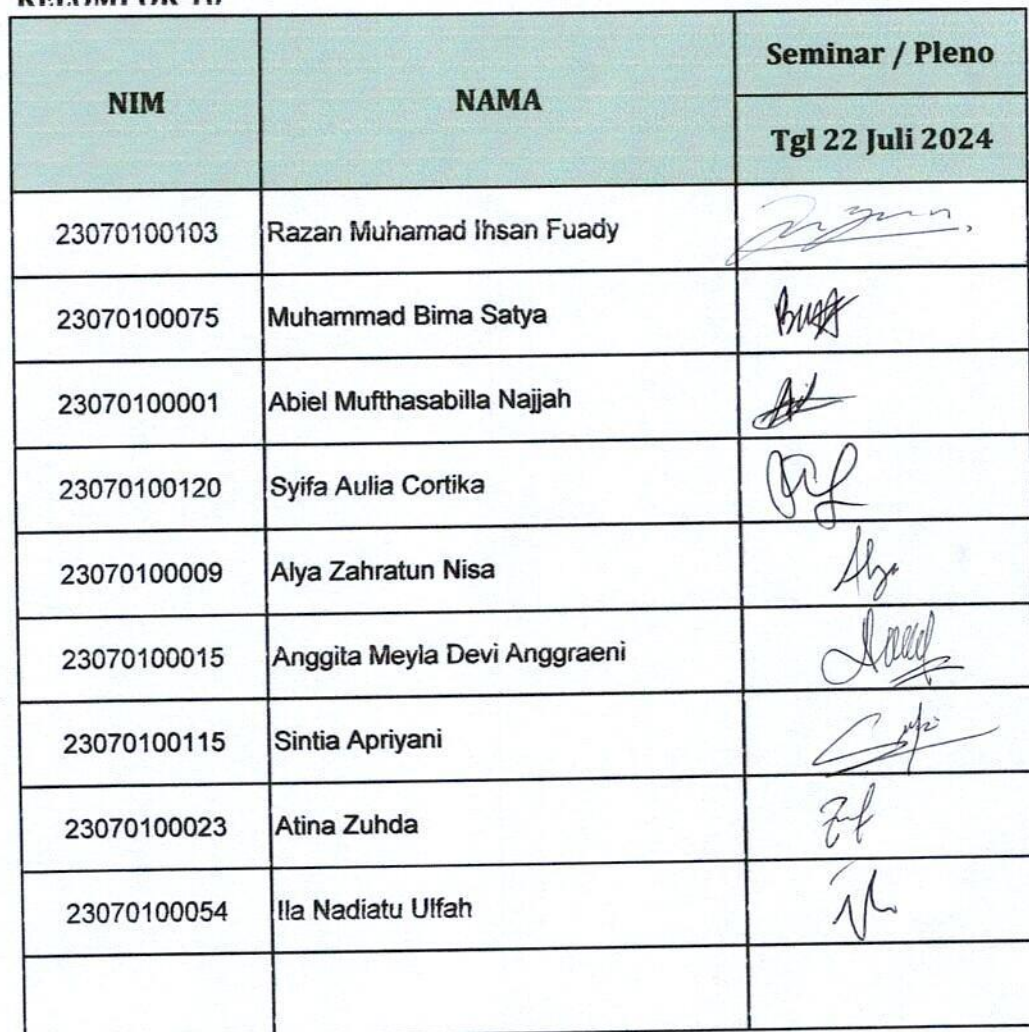 NIM
NAMA
Seminar / Pleno
Tgl 22 Juli 2024
23070100103 Razan Muhamad Ihsan Fuady
23070100075 Muhammad Bima Satya
23070100001 Abiel Mufthasabilla Najjah
23070100120 Syifa Aulia Cortika
23070100009 Alya Zahratun Nisa
23070100015 Anggita Meyla Devi Anggraeni
23070100115 Sintia Apriyani
23070100023 Atina Zuhda
23070100054 Ila Nadiatu Ulfah